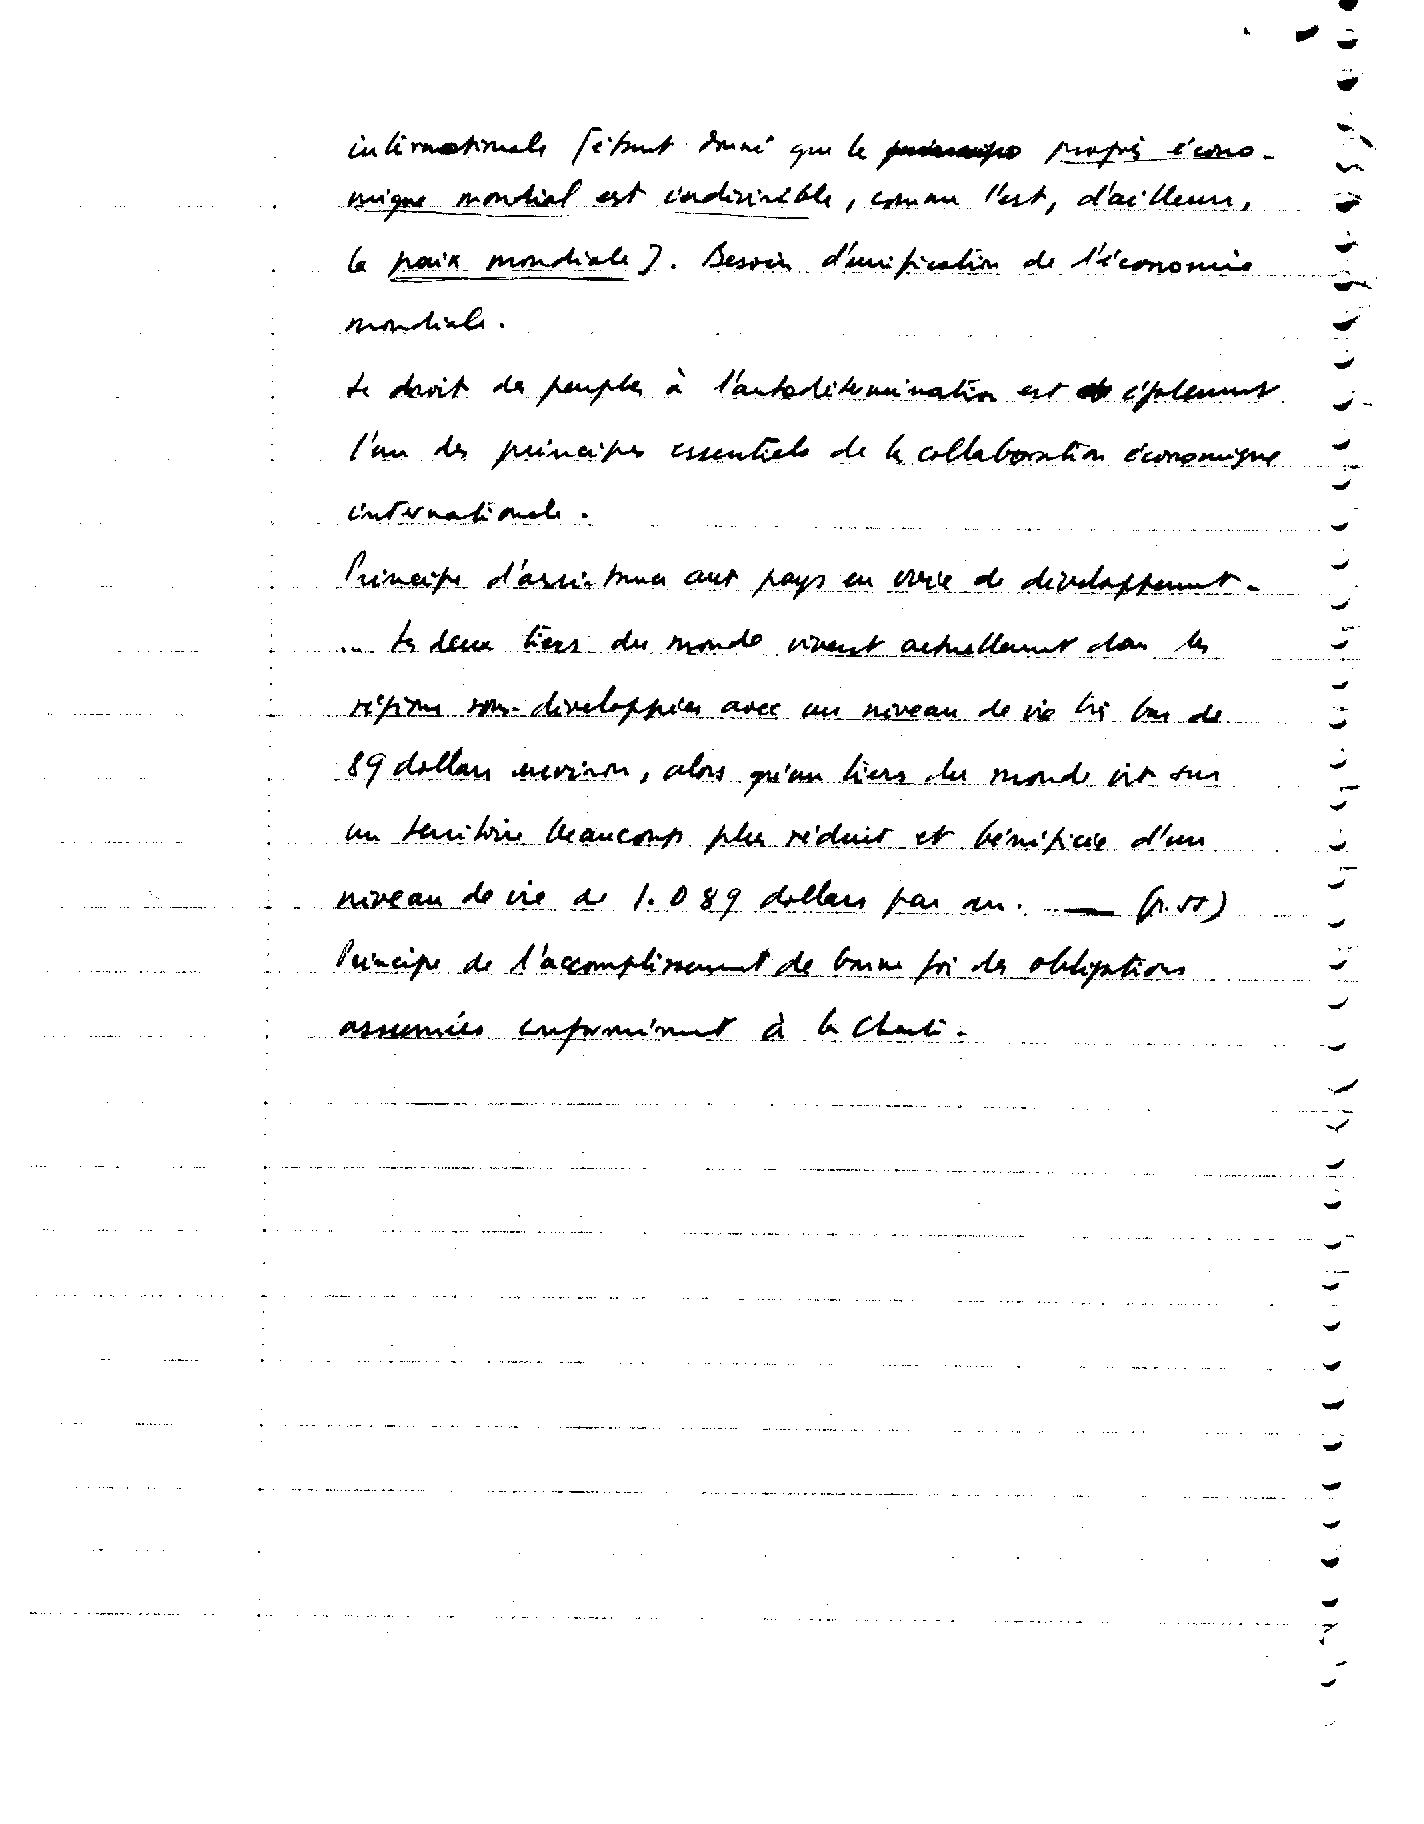 internationale [étant donné que le progrès écono-
mique mondial est indivisible, comme l'est, d'ailleurs,
la paix mondiale]. Besoin d'unification de l'économie
mondiale.
Le droit des peuples à l'autodétermination est également
l'un des principes essentiels de la collaboration économique
internationale.
Principe d'assistance aux pays en voie de développement.
... Les deux tiers du monde vivent actuellement dans les
régions sous-développées avec un niveau de vie très bas de
89 dollars environ, alors qu'un tiers du monde vit sur
un territoire beaucoup plus réduit et bénéficie d'un
niveau de vie de 1.089 dollars par an. — (p. 55)
Principe de l'accomplissement de bonne foi des obligations
assumées conformément à la Charte.